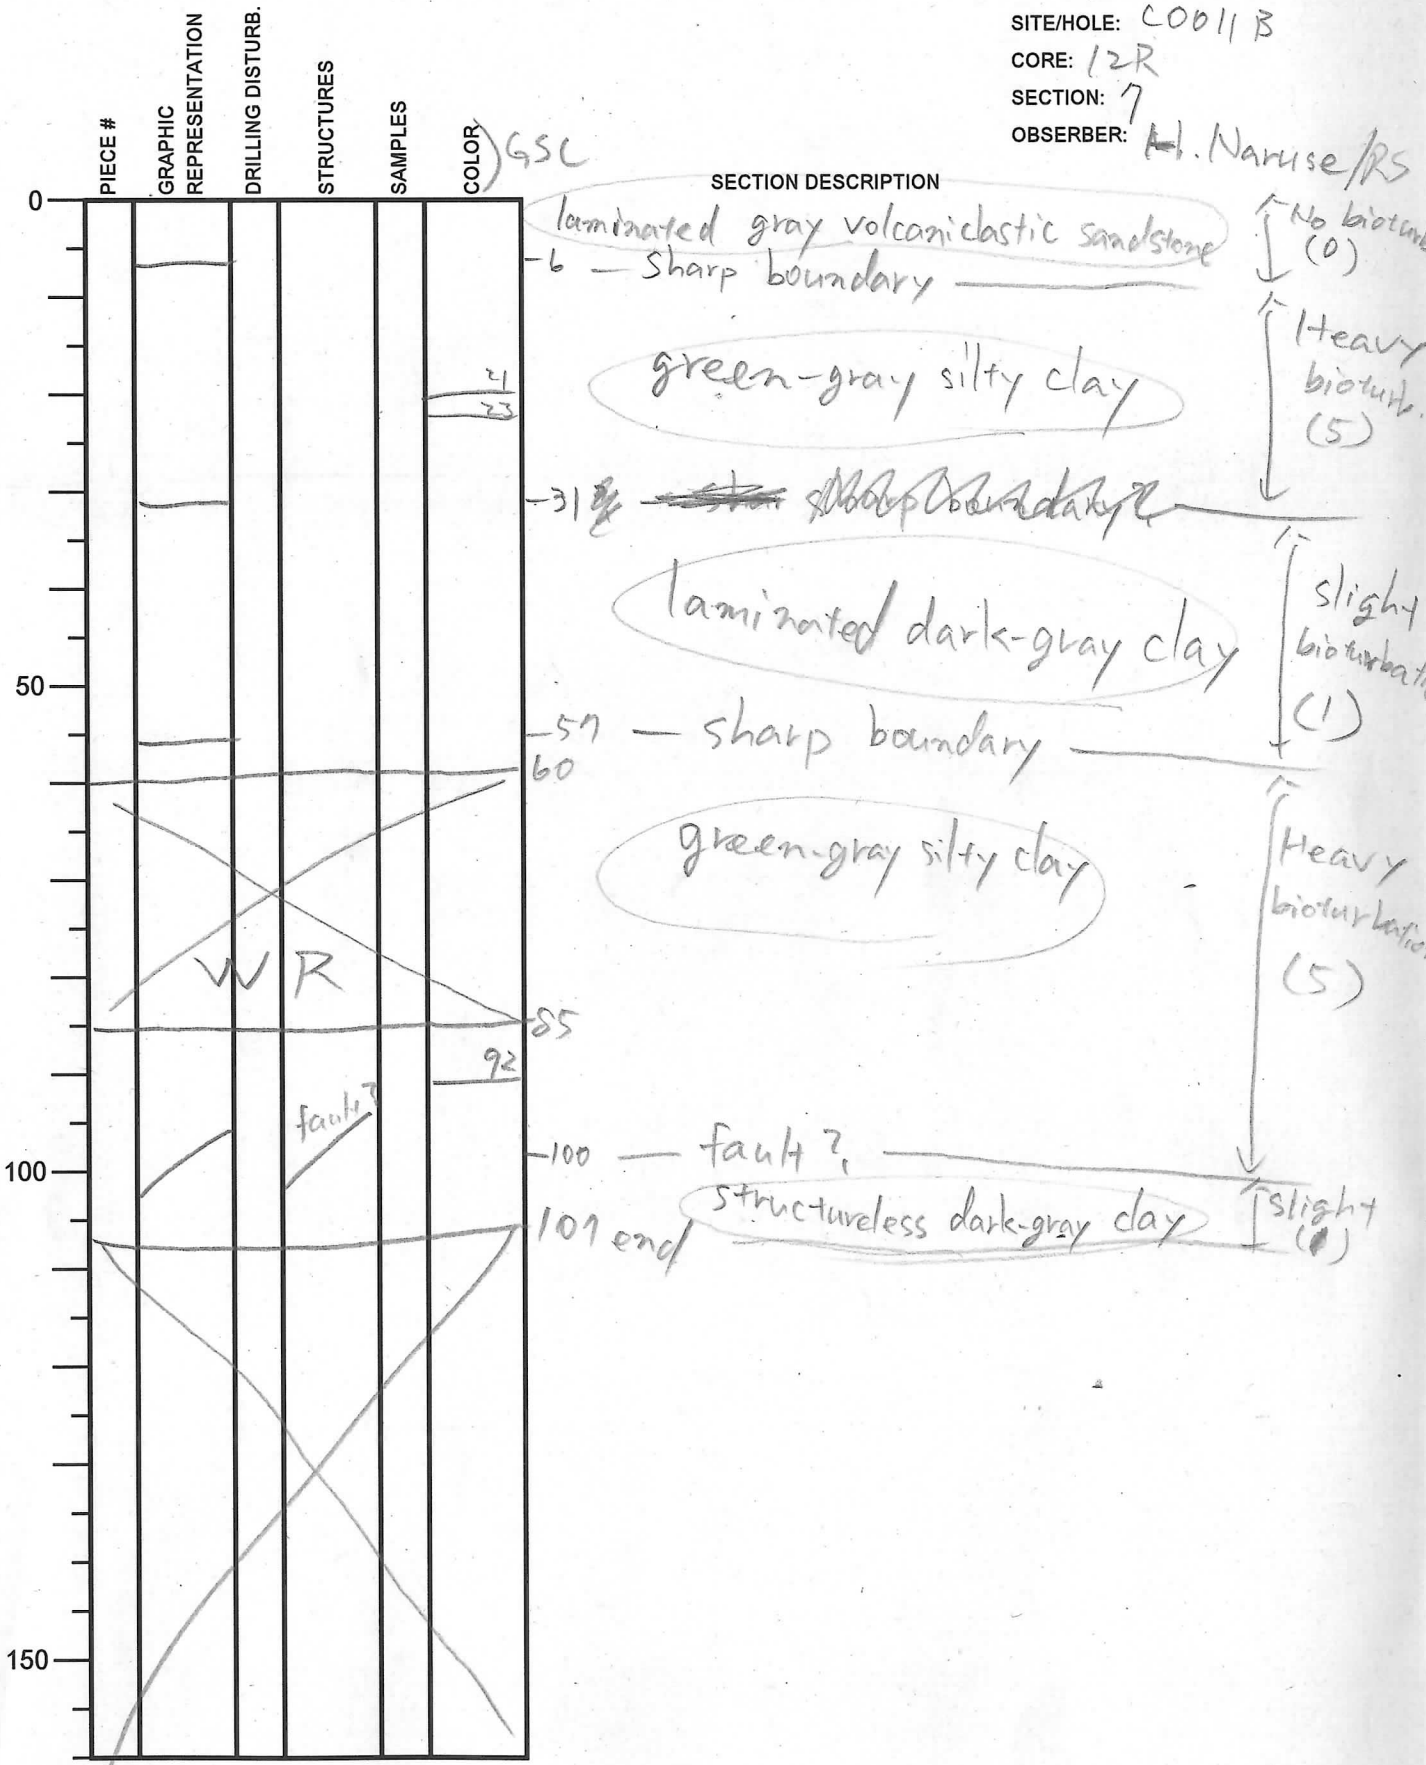 SITE/HOLE: C0011B
CORE: 12R
SECTION: 7
OBSERBER: H. Naruse/RS
PIECE #
GRAPHIC REPRESENTATION
DRILLING DISTURB.
STRUCTURES
SAMPLES
COLOR) GSC
SECTION DESCRIPTION
0
laminated gray volcaniclastic sandstone
No bioturb
(0)
-6 — Sharp boundary
Heavy
bioturb.
(5)
green-gray silty clay
21
23
-31
sharp boundary?
laminated dark-gray clay
slight
bioturbati
(1)
50
-57 — sharp boundary
60
green-gray silty clay
Heavy
bioturbatio
(5)
WR
85
92
fault?
100
-100 — fault?
structureless dark-gray clay
slight
(1)
107 end
150